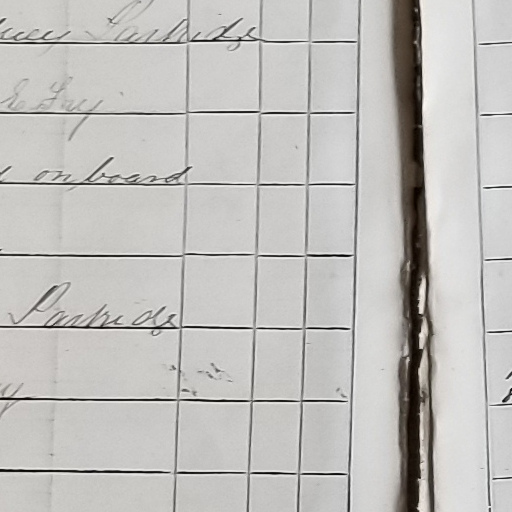 Partridge
E Fry
on board
Partridge